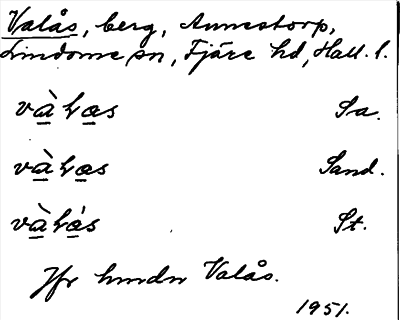 Valås, berg, Annestorp,
Lindome sn, Fjäre hd, Hall. l.
vàlas Sa.
vàlas Sand.
vàlás St.
Jfr Valås.
1951.